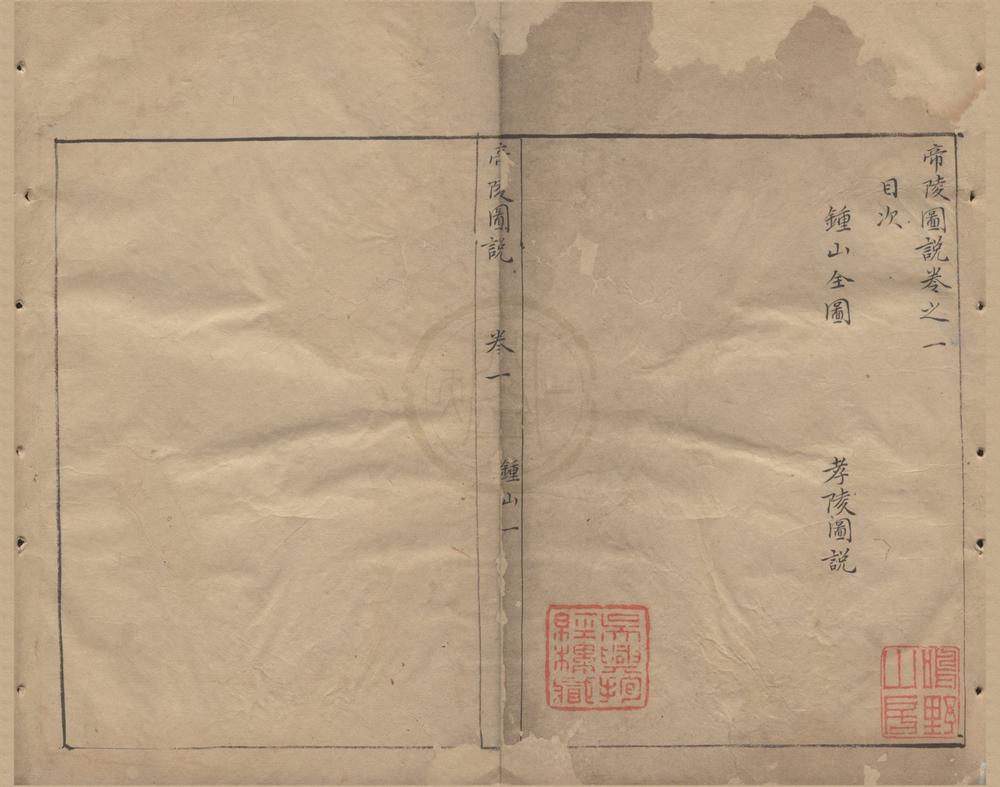 帝陵圖說卷之一
目次
鍾山全圖
孝陵圖說
帝陵圖說 卷一 鍾山一
鳴野山房
吳興抱經樓藏